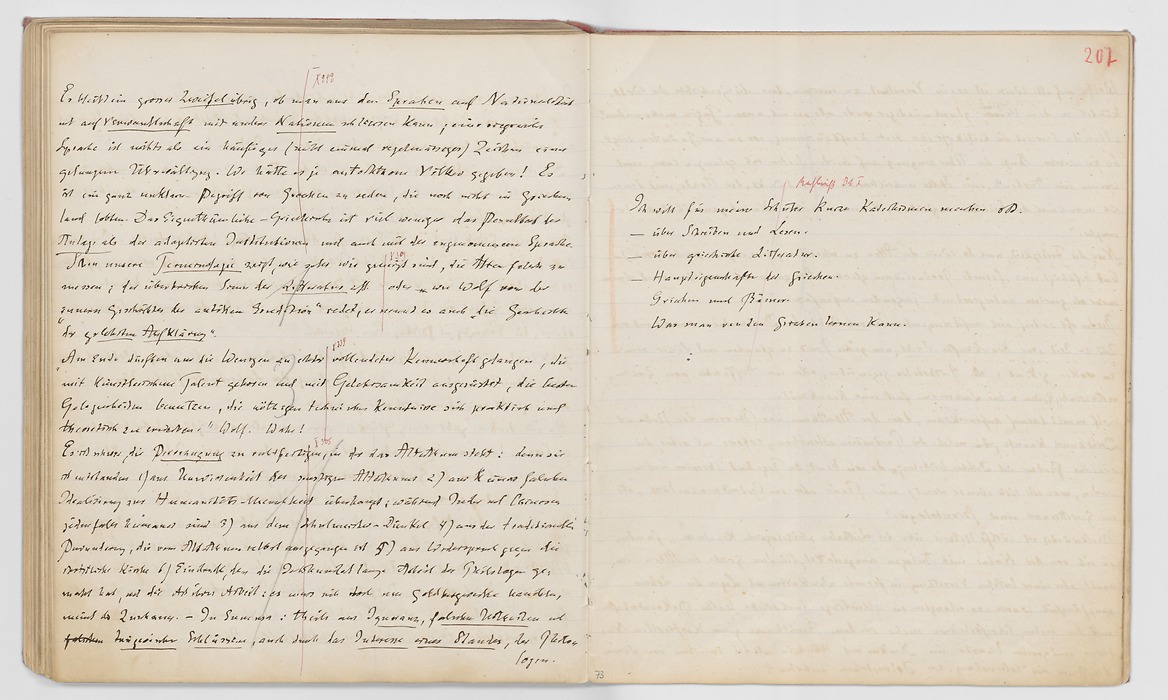 Es bleibt ein grosser Zweifel übrig, ob man aus den Sprachen auf Nationalität
und auf Verwandtschaft mit andern Nationen schliessen kann; eine siegreiche
Sprache ist nichts als ein häufiges (nicht einmal regelmässiges) Zeichen einer
gelungenen Überwältigung. Wo hätte es je autochthone Völker gegeben! Es
ist ein ganz unklarer Begriff von Griechen zu reden, die noch nicht in Griechen
land lebten. Das Eigenthümliche-Griechische ist viel weniger das Resultat der
Anlage als der adaptirten Institutionen und auch mit der angenommenen Sprache.
Schon unsere Terminologie zeigt, wie wir geneigt sind, die Alten falsch zu
messen; der übertriebene Sinn der Litteratur oder wie Wolf von der
inneren Geschichte der antiken Erudition" redet, er nennt es auch die Geschichte
"der gelehrten Aufklärung".
"Am Ende dürften nur die Wenigen zu ächter vollendeter Kennerschaft gelangen, die
"mit künstlerischem Talent geboren und mit Gelehrsamkeit ausgerüstet, die besten
Gelegenheiten benutzen, die nöthigen technischen Kenntnisse sich praktisch und
theoretisch zu erwerben." Wolf. Wahr!
Es ist schwer, die Bevorzugung zu rechtfertigen, in der das Alterthum steht: denn sie
ist entstanden 1) aus Unwissenheit des sonstigen Alterthums 2) aus einer falschen
Idealisirung zur Humanitäts-Menschheit überhaupt; während Inder und Chinesen
jedenfalls humaner sind 3) aus dem Schulmeister-Dünkel 4) aus der traditionellen
Bewunderung, die vom Alterthum selbst ausgegangen ist 5) aus Widerspruch gegen die
christliche Kirche 6) Eindruck, den die Jahrhundertlange Arbeit der Philologen ge-
macht hat, und die Art ihrer Arbeit: es muss sich doch um Goldbergwerke handeln,
meint der Zuschauer. – In Summa: theils aus Ignoranz, falschen Urtheilen und
trügerischen Schlüssen, auch durch das Interesse eines Standes, der Philo
logen.
73
201
Ich will für meine Schüler kurze Katechismen machen z.B.
– über Schreiben und Lesen.
– über griechische Litteratur.
– Haupteigenschaften der Griechen.
Griechen und Römer.
Was man von den Griechen lernen kann.